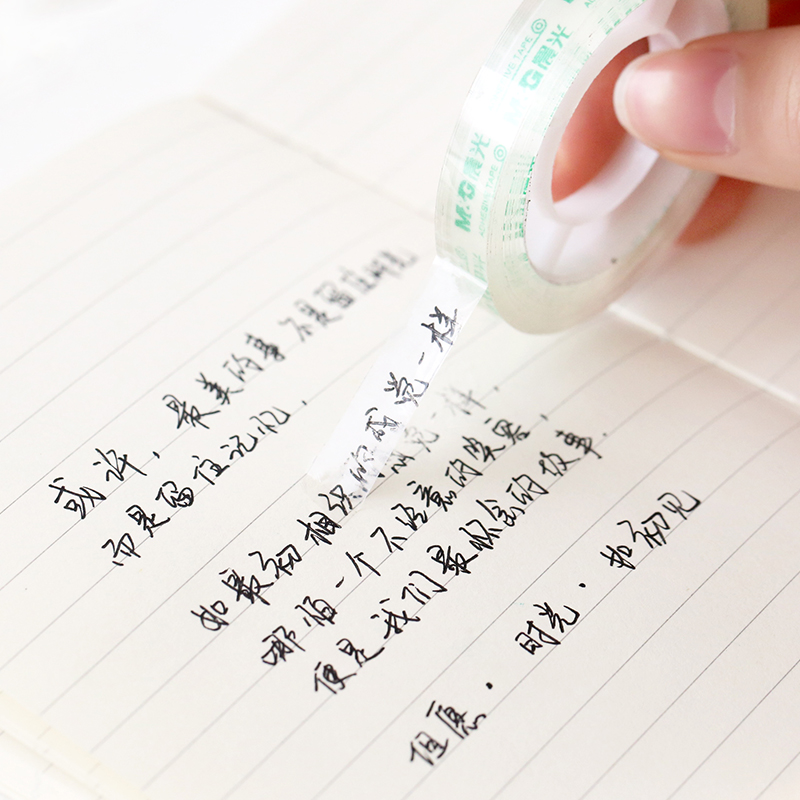 M&G晨光
ADHESIVE TAPE
或许，最美的事不是留住时光
而是留住记忆，
如最初相识的感觉一样，
哪怕一个不经意的笑容，
便是我们最怀念的故事.
但愿，时光，如初见